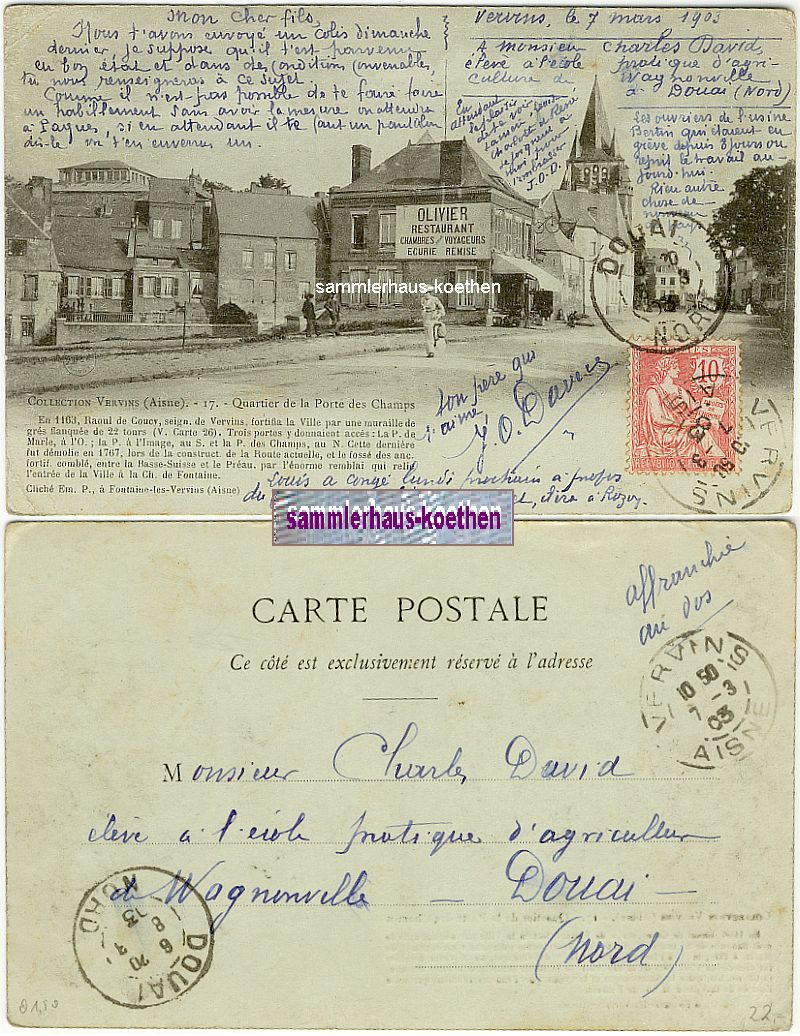 Mon cher fils,
Nous t'avons envoyé un colis dimanche
dernier, je suppose qu'il t'est parvenu
en bon état et dans des conditions convenables,
tu nous renseigneras à ce sujet.
Comme il n'est pas possible de te faire faire
un habillement sans avoir la mesure on attendra
à Pâques, si en attendant il te faut un pantalon
dis-le on t'en enverra un.
Vervins, le 7 mars 1903
A monsieur Charles David,
élève à l'école pratique d'agri-
culture de Wagnonville
à Douai (Nord)
En attendant
le plaisir
de te voir
t'embrasser
J.O.D.
Les ouvriers de l'usine
Bertin qui étaient en
grève depuis 8 jours ou
repris le travail au-
jourd'hui.
Rien autre
chose de
nouveau
OLIVIER
RESTAURANT
CHAMBRES POUR VOYAGEURS
ECURIE REMISE
sammlerhaus-koethen
DOUAI
NORD
10
VERVINS
COLLECTION VERVINS (Aisne). - 17. - Quartier de la Porte des Champs
En 1163, Raoul de Coucy, seign. de Vervins, fortifia la Ville par une muraille de
grès flanquée de 22 tours (V. Carte 26). Trois portes y donnaient accès : La P. de
Marle, à l'O. ; la P. à l'Image, au S. et la P. des Champs, au N. Cette dernière
fut démolie en 1767, lors de la construct. de la Route actuelle, et le fossé des anc.
fortif. comblé, entre la Basse-Suisse et le Préau, par l'énorme remblai qui relie
l'entrée de la Ville à la Ch. de Fontaine.
Cliché Em. P., à Fontaine-les-Vervins (Aisne)
Ton père qui
t'aime
J. O. David
Louis a congé lundi prochain à propos
du
ira à Rozoy.
sammlerhaus-koethen
affranchie
au dos
CARTE POSTALE
Ce côté est exclusivement réservé à l'adresse
VERVINS
10 50
7 - 3
03
AISNE
Monsieur Charles David
élève à l'école pratique d'agriculture
de Wagnonville - Douai -
(Nord)
DOUAI
NORD
22,-